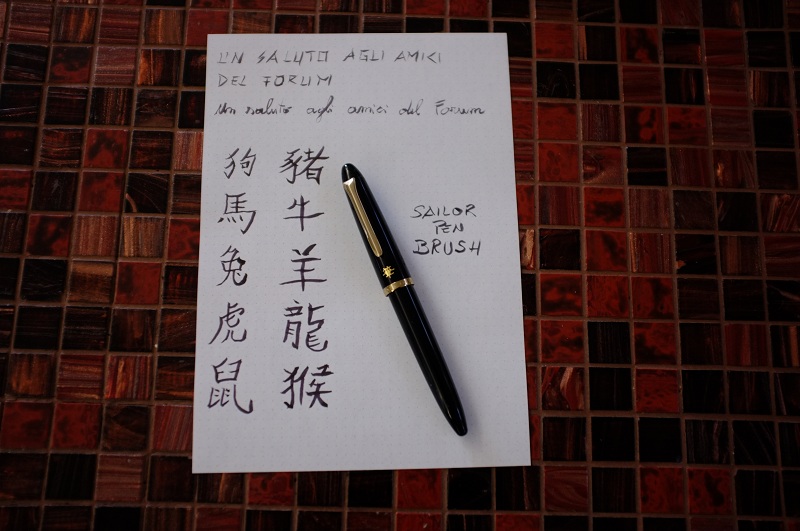 UN SALUTO AGLI AMICI
DEL FORUM
Un saluto agli amici del Forum
狗 豬
馬 牛
兔 羊
虎 龍
鼠 猴
SAILOR
PEN
BRUSH